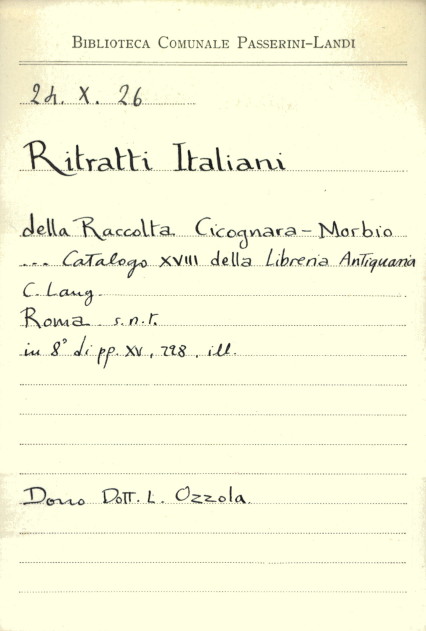 BIBLIOTECA COMUNALE PASSERINI-LANDI
24. X. 26
Ritratti Italiani
della Raccolta Cicognara-Morbio
... Catalogo XVIII della Libreria Antiquaria
C. Lang.
Roma s.n.t.
in 8° di pp. XV, 228. ill.
Dono Dott. L. Ozzola.